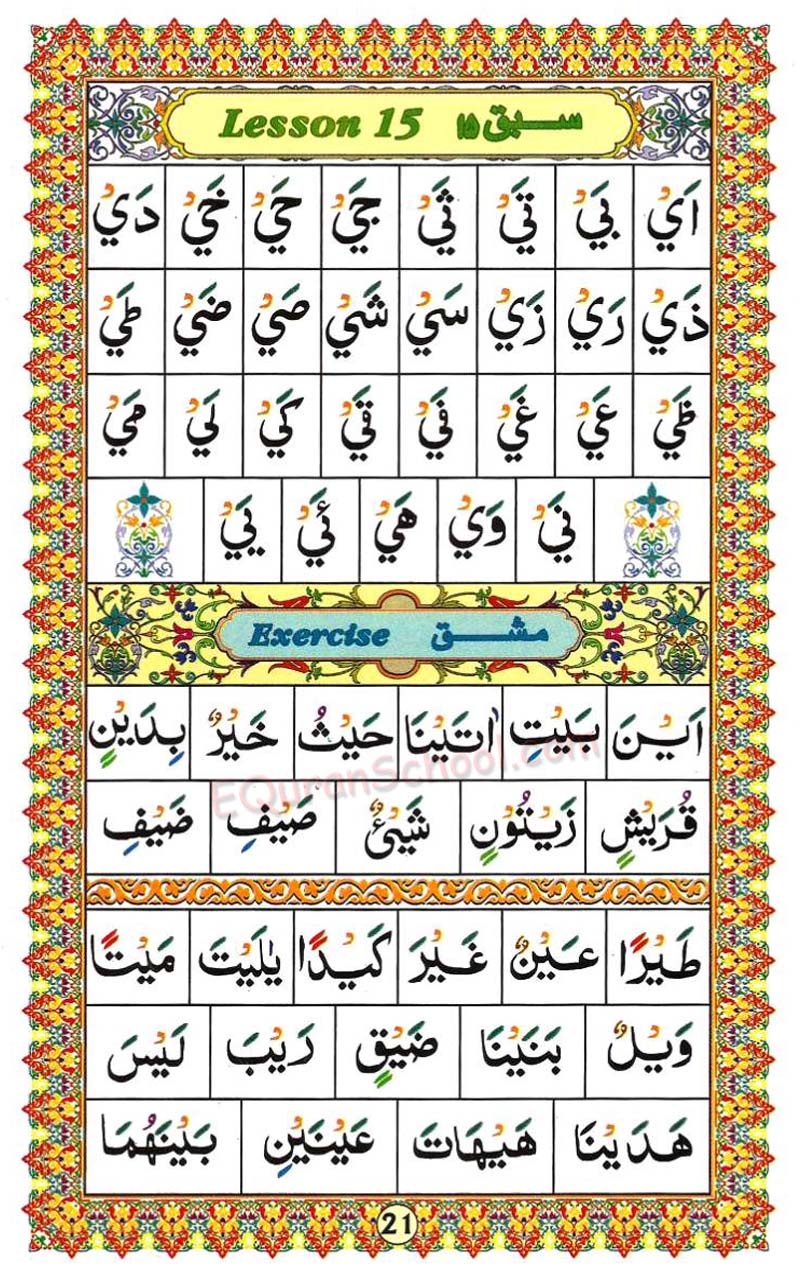 Lesson 15 سبق ۱۵
اَيْ بَيْ تَيْ ثَيْ جَيْ حَيْ خَيْ دَيْ
ذَيْ رَيْ زَيْ سَيْ شَيْ صَيْ ضَيْ طَيْ
ظَيْ عَيْ غَيْ فَيْ قَيْ كَيْ لَيْ مَيْ
نَيْ وَيْ هَيْ ئَيْ يَيْ
Exercise مشق
اَيْنَ بَيْتِ اٰتَيْنَا حَيْثُ خَيْرٌ بِدَيْنٍ
قُرَيْشٍ زَيْتُوْنٍ شَيْئٌ صَيْفِ ضَيْفِ
طَيْرًا عَيْنٌ غَيْرَ كَيْدًا يٰلَيْتَ مَيْتًا
وَيْلٌ بَنَيْنَا ضَيْقٍ رَيْبَ لَيْسَ
هَدَيْنَا هَيْهَاتَ عَيْنَيْنِ بَيْنَهُمَا
EQuranSchool.com
21